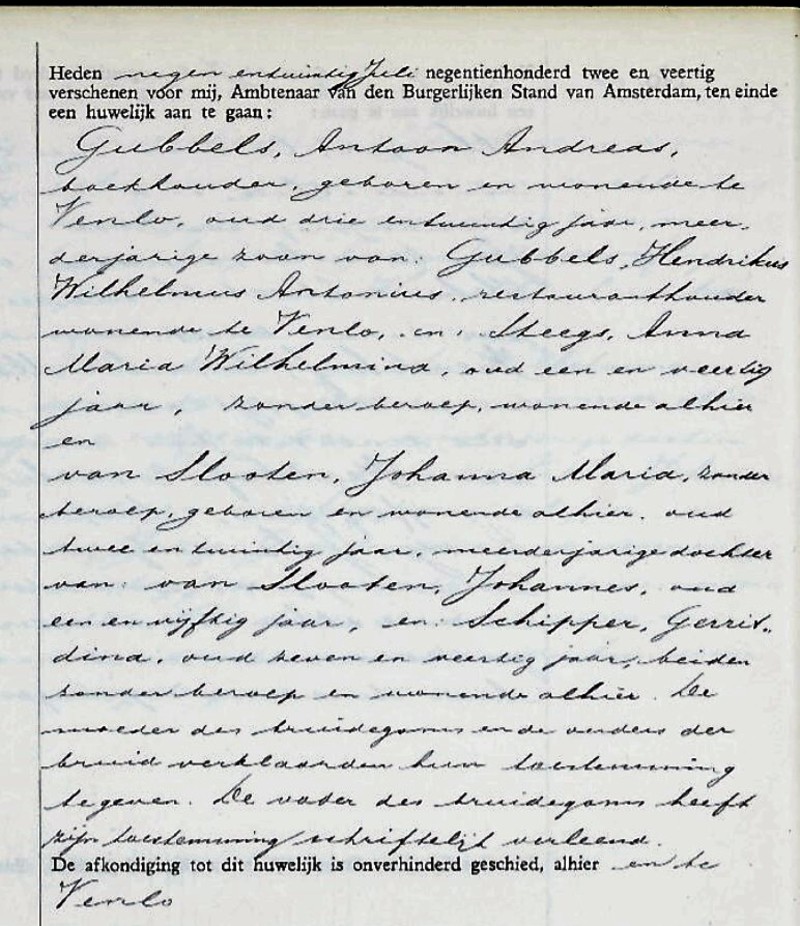 Heden negen en twintig Juli negentienhonderd twee en veertig
verschenen voor mij, Ambtenaar van den Burgerlijken Stand van Amsterdam, ten einde
een huwelijk aan te gaan:
Gubbels, Antoon Andreas,
boekhouder, geboren en wonende te
Venlo, oud drie en twintig jaar, meer-
derjarige zoon van: Gubbels, Hendrikus
Wilhelmus Antonius, restauranthouder
wonende te Venlo, en: Steegs, Anna
Maria Wilhelmina, oud een en veertig
jaar, zonder beroep, wonende alhier
en
van Slooten, Johanna Maria, zonder
beroep, geboren en wonende alhier, oud
twee en twintig jaar, meerderjarige dochter
van: van Slooten, Johannes, oud
een en vijftig jaar, en: Schipper, Gerrit-
dina, oud zeven en veertig jaar, beiden
zonder beroep en wonende alhier. De
moeder des bruidegoms en de ouders der
bruid verklaarden hun toestemming
te geven. De vader des bruidegoms heeft
zijn toestemming schriftelijk verleend.
De afkondiging tot dit huwelijk is onverhinderd geschied, alhier en te
Venlo